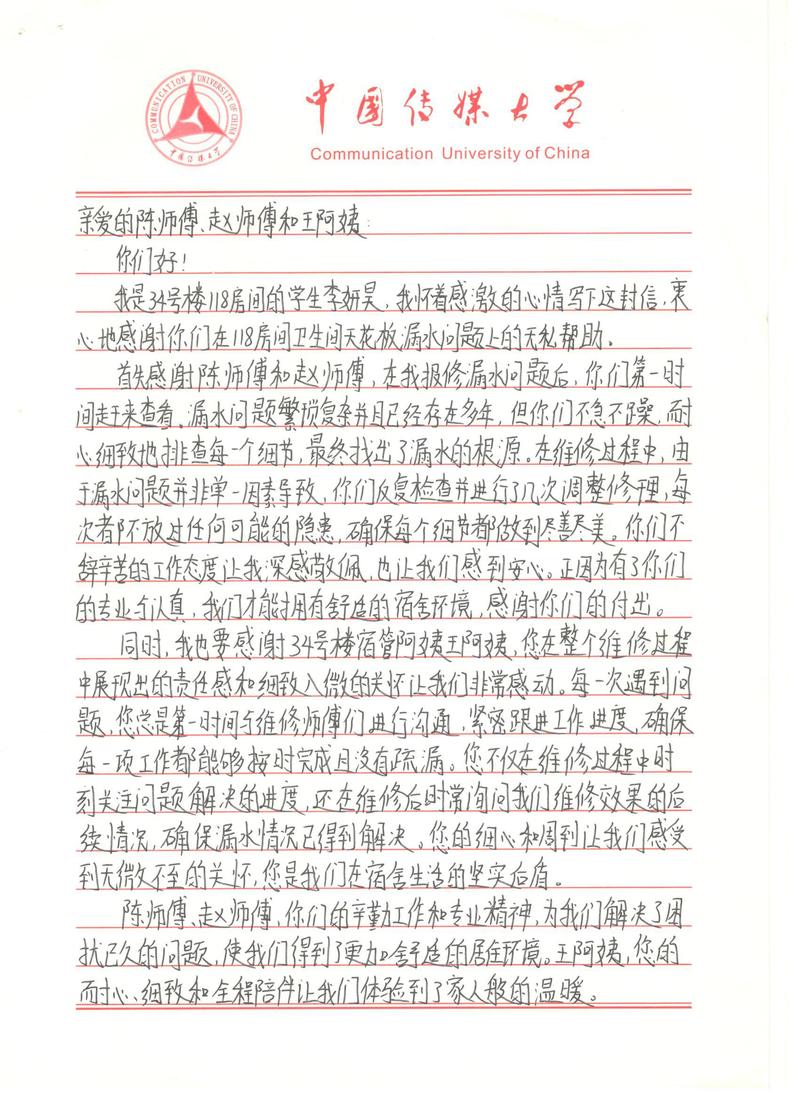 COMMUNICATION UNIVERSITY OF CHINA
中国传媒大学
中国传媒大学
Communication University of China
亲爱的陈师傅、赵师傅和王阿姨：
你们好！
我是34号楼118房间的学生李妍昊，我怀着感激的心情写下这封信，衷
心地感谢你们在118房间卫生间天花板漏水问题上的无私帮助。
首先感谢陈师傅和赵师傅，在我报修漏水问题后，你们第一时
间赶来查看。漏水问题繁琐复杂并且已经存在多年，但你们不急不躁，耐
心细致地排查每一个细节，最终找出了漏水的根源。在维修过程中，由
于漏水问题并非单一因素导致，你们反复检查并进行了几次调整修理，每
次都不放过任何可能的隐患，确保每个细节都做到尽善尽美。你们不
辞辛苦的工作态度让我深感敬佩，也让我们感到安心。正因为有了你们
的专业与认真，我们才能拥有舒适的宿舍环境，感谢你们的付出。
同时，我也要感谢34号楼宿管阿姨王阿姨，您在整个维修过程
中展现出的责任感和细致入微的关怀让我们非常感动。每一次遇到问
题，您总是第一时间与维修师傅们进行沟通，紧密跟进工作进度，确保
每一项工作都能够按时完成且没有疏漏。您不仅在维修过程中时
刻关注问题解决的进度，还在维修后时常询问我们维修效果的后
续情况，确保漏水情况已得到解决。您的细心和周到让我们感受
到无微不至的关怀，您是我们在宿舍生活的坚实后盾。
陈师傅、赵师傅，你们的辛勤工作和专业精神，为我们解决了困
扰已久的问题，使我们得到了更加舒适的居住环境。王阿姨，您的
耐心、细致和全程陪伴让我们体验到了家人般的温暖。